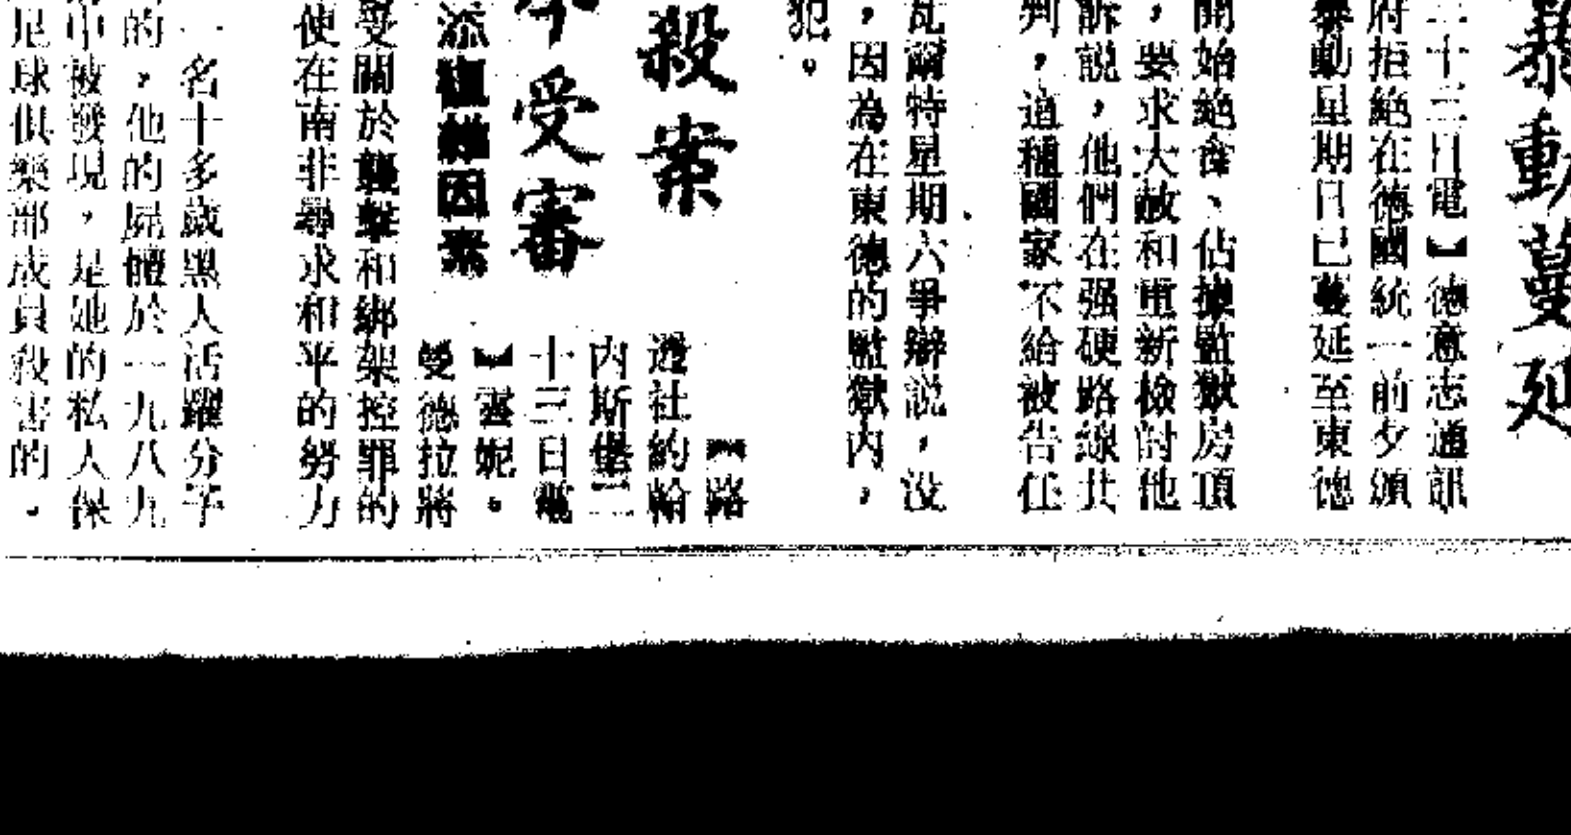 暴動蔓延
二十三日電】德意志通訊
府拒絕在德國統一前夕頒
暴動星期日已蔓延至東德
開始絕食、佔據監獄房頂
，要求大赦和重新檢討他
訴說，他們在强硬路線共
判，這種國家不給被告任
瓦爾特星期六爭辯說，没
，因為在東德的監獄內，
犯。
殺案
受審
添 因素
【路
透社約翰
內斯堡二
十三日電
】雲妮。
曼德拉將
受關於襲擊和綁架控罪的
使在南非尋求和平的努力
一名十多歲黑人活躍分子
的，他的屍體於一九八九
中被發現，是她的私人保
足球俱樂部成員殺害的。